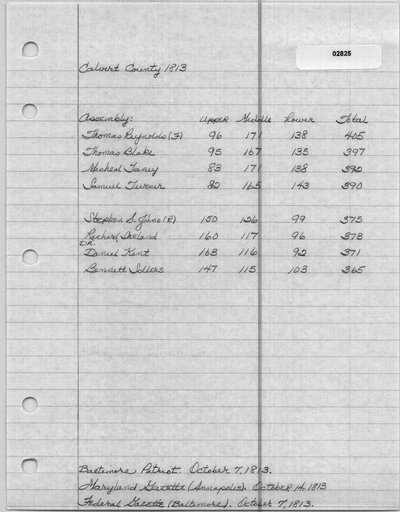 02825
Calvert County 1813
Assembly: Upper Middle Lower Total
Thomas Reynolds (F) 96 171 138 405
Thomas Blake 95 167 135 397
Meshed Taney 83 171 138 392
Samuel Turner 82 165 143 390
Stephen S. Johns (R) 150 126 99 375
Richard Ireland 160 117 96 373
Dr.
Daniel Kent 163 116 92 371
Bennett Sollers 147 115 103 365
Baltimore Patriot October 7, 1813.
Maryland Gazette (Annapolis). October 14, 1813
Federal Gazette (Baltimore). October 7, 1813.